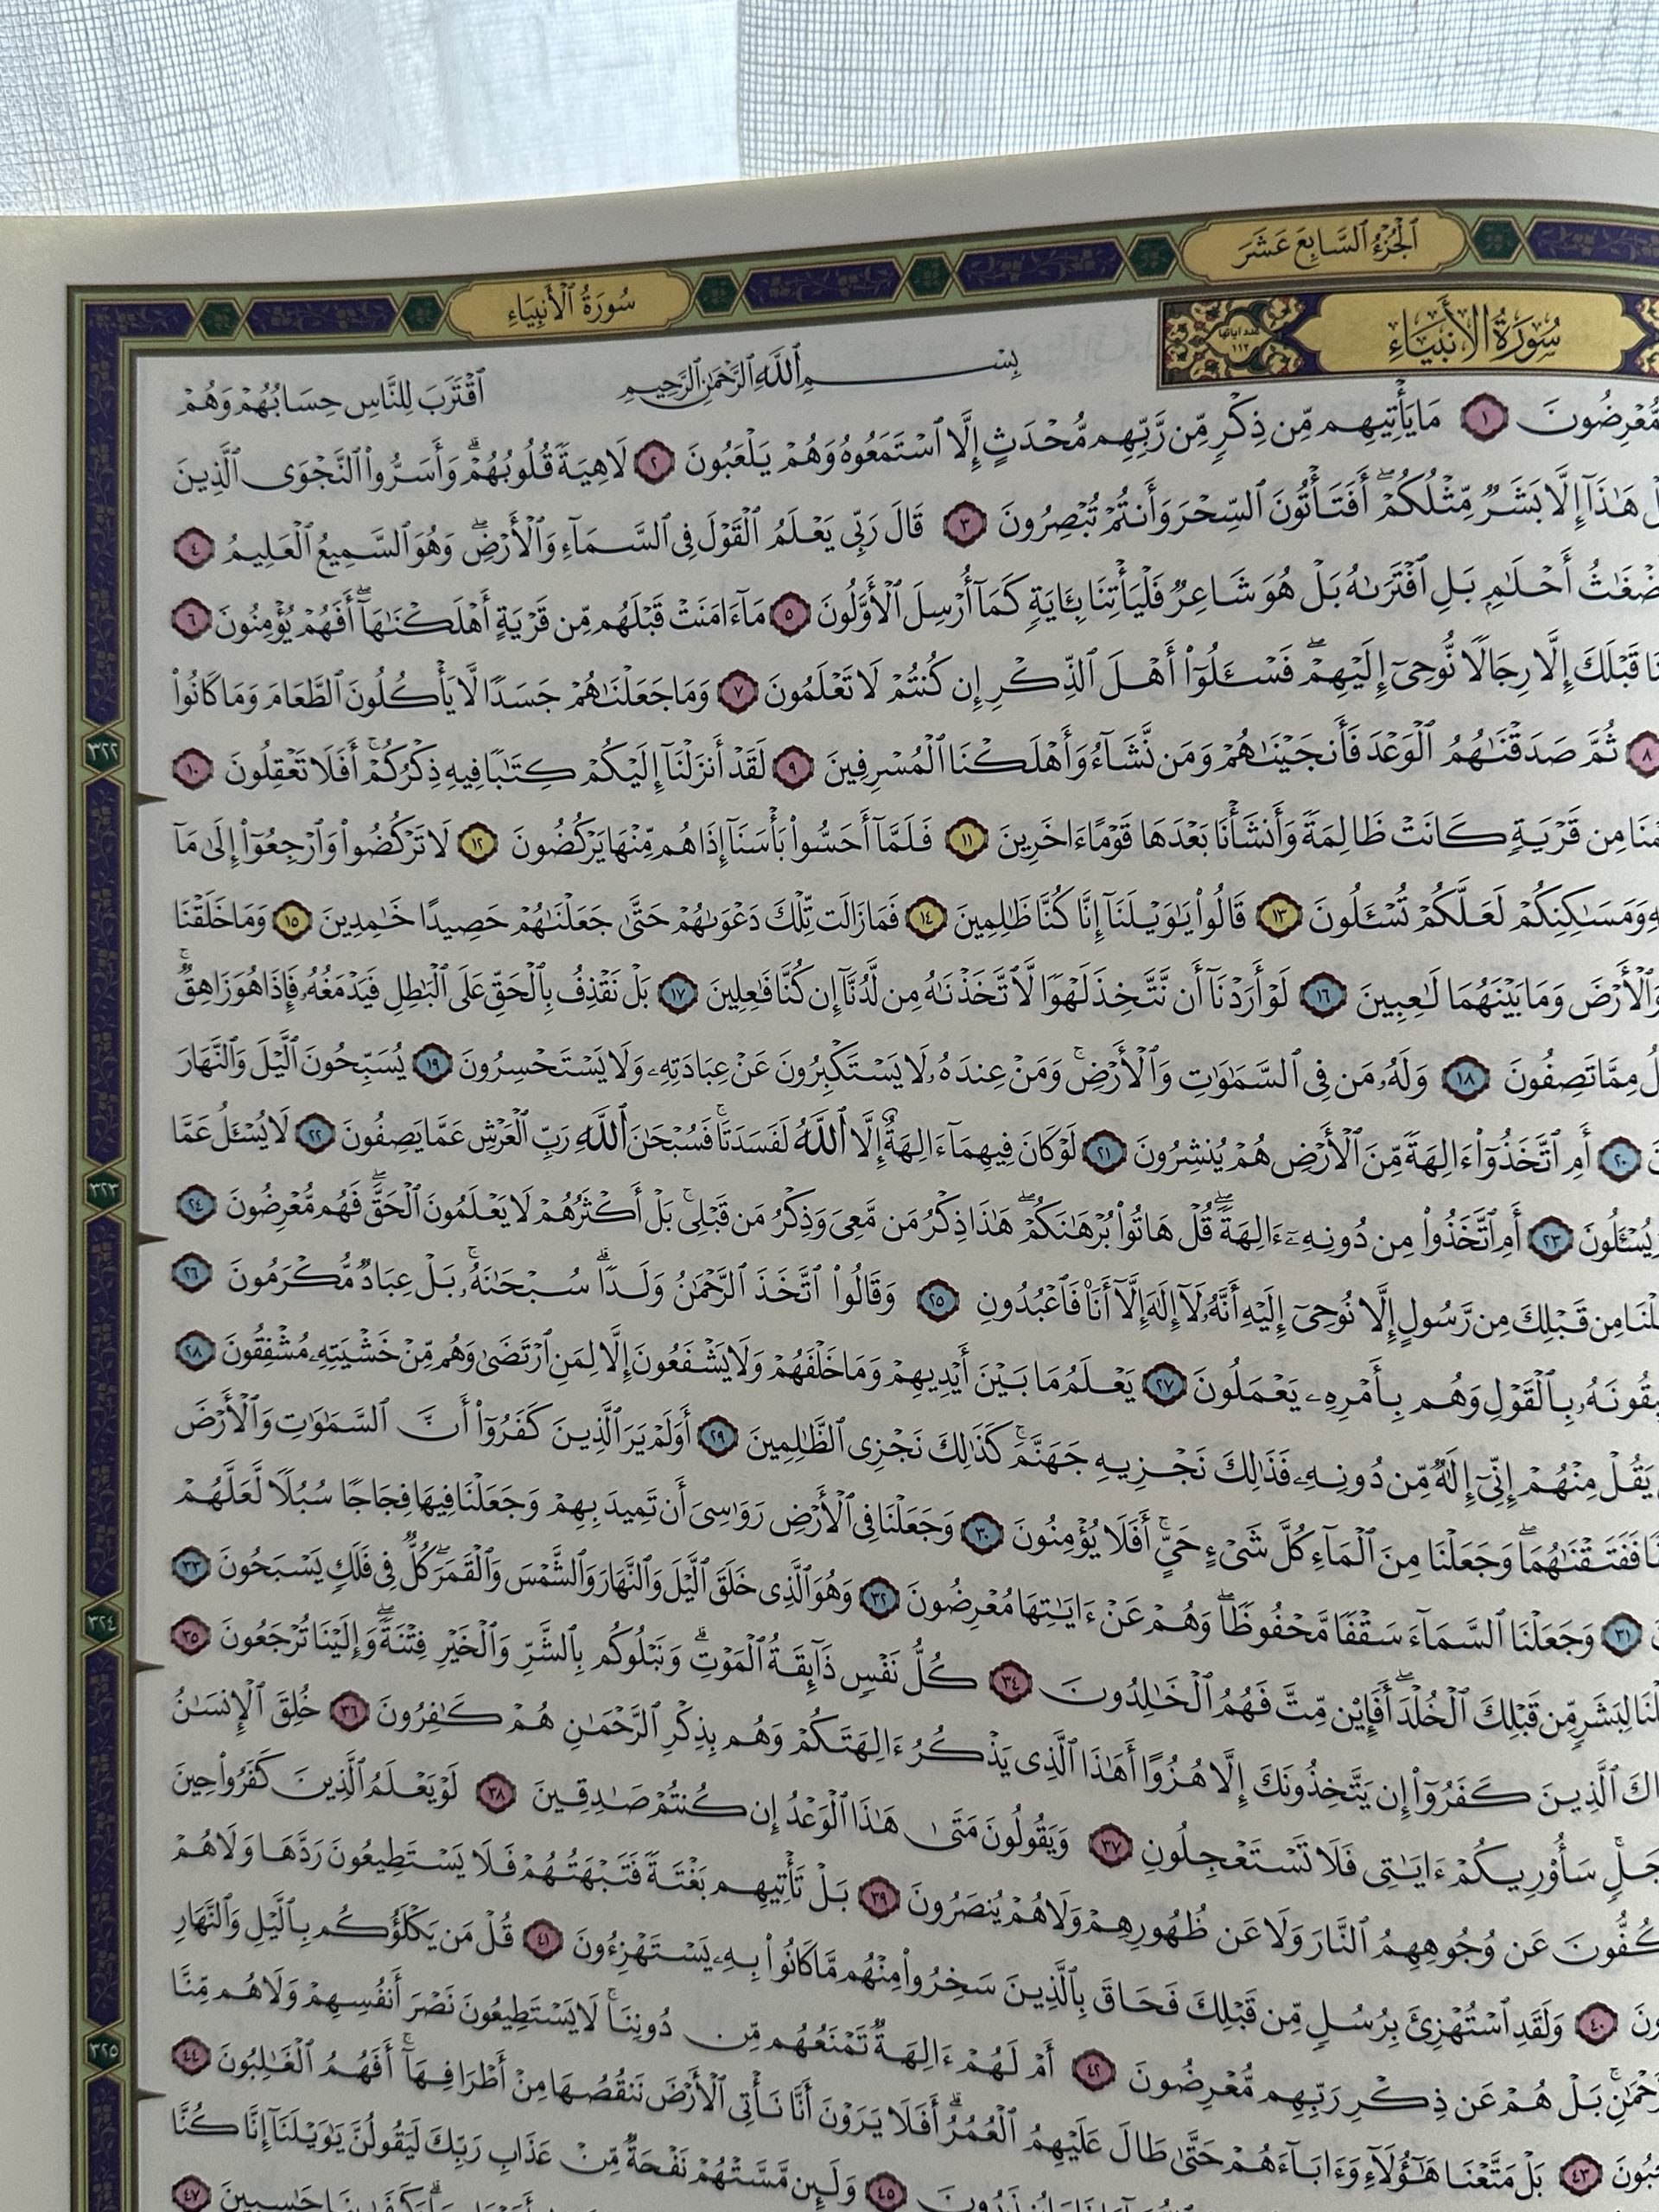 ٱلْجُزْءُ ٱلسَّابِعَ عَشَرَ
سُورَةُ ٱلْأَنبِيَاءِ
سُورَةُ الأَنبِيَاءِ
عدد آياتها ١١٢
بِسْمِ ٱللَّهِ ٱلرَّحْمَٰنِ ٱلرَّحِيمِ ٱقْتَرَبَ لِلنَّاسِ حِسَابُهُمْ وَهُمْ
مُّعْرِضُونَ ١ مَا يَأْتِيهِم مِّن ذِكْرٍ مِّن رَّبِّهِم مُّحْدَثٍ إِلَّا ٱسْتَمَعُوهُ وَهُمْ يَلْعَبُونَ ٢ لَاهِيَةً قُلُوبُهُمْ ۗ وَأَسَرُّوا۟ ٱلنَّجْوَى ٱلَّذِينَ
هَٰذَآ إِلَّا بَشَرٌ مِّثْلُكُمْ ۖ أَفَتَأْتُونَ ٱلسِّحْرَ وَأَنتُمْ تُبْصِرُونَ ٣ قَالَ رَبِّى يَعْلَمُ ٱلْقَوْلَ فِى ٱلسَّمَآءِ وَٱلْأَرْضِ ۖ وَهُوَ ٱلسَّمِيعُ ٱلْعَلِيمُ ٤
أَحْلَٰمٍۭ بَلِ ٱفْتَرَىٰهُ بَلْ هُوَ شَاعِرٌ فَلْيَأْتِنَا بِـَٔايَةٍ كَمَآ أُرْسِلَ ٱلْأَوَّلُونَ ٥ مَآ ءَامَنَتْ قَبْلَهُم مِّن قَرْيَةٍ أَهْلَكْنَٰهَآ ۖ أَفَهُمْ يُؤْمِنُونَ ٦
قَبْلَكَ إِلَّا رِجَالًا نُّوحِىٓ إِلَيْهِمْ ۖ فَسْـَٔلُوٓا۟ أَهْلَ ٱلذِّكْرِ إِن كُنتُمْ لَا تَعْلَمُونَ ٧ وَمَا جَعَلْنَٰهُمْ جَسَدًا لَّا يَأْكُلُونَ ٱلطَّعَامَ وَمَا كَانُوا۟
٨ ثُمَّ صَدَقْنَٰهُمُ ٱلْوَعْدَ فَأَنجَيْنَٰهُمْ وَمَن نَّشَآءُ وَأَهْلَكْنَا ٱلْمُسْرِفِينَ ٩ لَقَدْ أَنزَلْنَآ إِلَيْكُمْ كِتَٰبًا فِيهِ ذِكْرُكُمْ ۖ أَفَلَا تَعْقِلُونَ ١٠
مِن قَرْيَةٍ كَانَتْ ظَالِمَةً وَأَنشَأْنَا بَعْدَهَا قَوْمًا ءَاخَرِينَ ١١ فَلَمَّآ أَحَسُّوا۟ بَأْسَنَآ إِذَا هُم مِّنْهَا يَرْكُضُونَ ١٢ لَا تَرْكُضُوا۟ وَٱرْجِعُوٓا۟ إِلَىٰ مَآ
وَمَسَٰكِنِكُمْ لَعَلَّكُمْ تُسْـَٔلُونَ ١٣ قَالُوا۟ يَٰوَيْلَنَآ إِنَّا كُنَّا ظَٰلِمِينَ ١٤ فَمَا زَالَت تِّلْكَ دَعْوَىٰهُمْ حَتَّىٰ جَعَلْنَٰهُمْ حَصِيدًا خَٰمِدِينَ ١٥ وَمَا خَلَقْنَا
وَٱلْأَرْضَ وَمَا بَيْنَهُمَا لَٰعِبِينَ ١٦ لَوْ أَرَدْنَآ أَن نَّتَّخِذَ لَهْوًا لَّٱتَّخَذْنَٰهُ مِن لَّدُنَّآ إِن كُنَّا فَٰعِلِينَ ١٧ بَلْ نَقْذِفُ بِٱلْحَقِّ عَلَى ٱلْبَٰطِلِ فَيَدْمَغُهُۥ فَإِذَا هُوَ زَاهِقٌ ۚ
مِمَّا تَصِفُونَ ١٨ وَلَهُۥ مَن فِى ٱلسَّمَٰوَٰتِ وَٱلْأَرْضِ ۚ وَمَنْ عِندَهُۥ لَا يَسْتَكْبِرُونَ عَنْ عِبَادَتِهِۦ وَلَا يَسْتَحْسِرُونَ ١٩ يُسَبِّحُونَ ٱلَّيْلَ وَٱلنَّهَارَ
٢٠ أَمِ ٱتَّخَذُوٓا۟ ءَالِهَةً مِّنَ ٱلْأَرْضِ هُمْ يُنشِرُونَ ٢١ لَوْ كَانَ فِيهِمَآ ءَالِهَةٌ إِلَّا ٱللَّهُ لَفَسَدَتَا ۚ فَسُبْحَٰنَ ٱللَّهِ رَبِّ ٱلْعَرْشِ عَمَّا يَصِفُونَ ٢٢ لَا يُسْـَٔلُ عَمَّا
يُسْـَٔلُونَ ٢٣ أَمِ ٱتَّخَذُوا۟ مِن دُونِهِۦٓ ءَالِهَةً ۖ قُلْ هَاتُوا۟ بُرْهَٰنَكُمْ ۖ هَٰذَا ذِكْرُ مَن مَّعِىَ وَذِكْرُ مَن قَبْلِى ۗ بَلْ أَكْثَرُهُمْ لَا يَعْلَمُونَ ٱلْحَقَّ ۖ فَهُم مُّعْرِضُونَ ٢٤
مِن قَبْلِكَ مِن رَّسُولٍ إِلَّا نُوحِىٓ إِلَيْهِ أَنَّهُۥ لَآ إِلَٰهَ إِلَّآ أَنَا۠ فَٱعْبُدُونِ ٢٥ وَقَالُوا۟ ٱتَّخَذَ ٱلرَّحْمَٰنُ وَلَدًا ۗ سُبْحَٰنَهُۥ ۚ بَلْ عِبَادٌ مُّكْرَمُونَ ٢٦
بِٱلْقَوْلِ وَهُم بِأَمْرِهِۦ يَعْمَلُونَ ٢٧ يَعْلَمُ مَا بَيْنَ أَيْدِيهِمْ وَمَا خَلْفَهُمْ وَلَا يَشْفَعُونَ إِلَّا لِمَنِ ٱرْتَضَىٰ وَهُم مِّنْ خَشْيَتِهِۦ مُشْفِقُونَ ٢٨
يَقُلْ مِنْهُمْ إِنِّىٓ إِلَٰهٌ مِّن دُونِهِۦ فَذَٰلِكَ نَجْزِيهِ جَهَنَّمَ ۚ كَذَٰلِكَ نَجْزِى ٱلظَّٰلِمِينَ ٢٩ أَوَلَمْ يَرَ ٱلَّذِينَ كَفَرُوٓا۟ أَنَّ ٱلسَّمَٰوَٰتِ وَٱلْأَرْضَ
فَفَتَقْنَٰهُمَا ۖ وَجَعَلْنَا مِنَ ٱلْمَآءِ كُلَّ شَىْءٍ حَىٍّ ۖ أَفَلَا يُؤْمِنُونَ ٣٠ وَجَعَلْنَا فِى ٱلْأَرْضِ رَوَٰسِىَ أَن تَمِيدَ بِهِمْ وَجَعَلْنَا فِيهَا فِجَاجًا سُبُلًا لَّعَلَّهُمْ
٣١ وَجَعَلْنَا ٱلسَّمَآءَ سَقْفًا مَّحْفُوظًا ۖ وَهُمْ عَنْ ءَايَٰتِهَا مُعْرِضُونَ ٣٢ وَهُوَ ٱلَّذِى خَلَقَ ٱلَّيْلَ وَٱلنَّهَارَ وَٱلشَّمْسَ وَٱلْقَمَرَ ۖ كُلٌّ فِى فَلَكٍ يَسْبَحُونَ ٣٣
لِبَشَرٍ مِّن قَبْلِكَ ٱلْخُلْدَ ۖ أَفَإِي۟ن مِّتَّ فَهُمُ ٱلْخَٰلِدُونَ ٣٤ كُلُّ نَفْسٍ ذَآئِقَةُ ٱلْمَوْتِ ۗ وَنَبْلُوكُم بِٱلشَّرِّ وَٱلْخَيْرِ فِتْنَةً ۖ وَإِلَيْنَا تُرْجَعُونَ ٣٥
ٱلَّذِينَ كَفَرُوٓا۟ إِن يَتَّخِذُونَكَ إِلَّا هُزُوًا أَهَٰذَا ٱلَّذِى يَذْكُرُ ءَالِهَتَكُمْ وَهُم بِذِكْرِ ٱلرَّحْمَٰنِ هُمْ كَٰفِرُونَ ٣٦ خُلِقَ ٱلْإِنسَٰنُ
سَأُو۟رِيكُمْ ءَايَٰتِى فَلَا تَسْتَعْجِلُونِ ٣٧ وَيَقُولُونَ مَتَىٰ هَٰذَا ٱلْوَعْدُ إِن كُنتُمْ صَٰدِقِينَ ٣٨ لَوْ يَعْلَمُ ٱلَّذِينَ كَفَرُوا۟ حِينَ
عَن وُجُوهِهِمُ ٱلنَّارَ وَلَا عَن ظُهُورِهِمْ وَلَا هُمْ يُنصَرُونَ ٣٩ بَلْ تَأْتِيهِم بَغْتَةً فَتَبْهَتُهُمْ فَلَا يَسْتَطِيعُونَ رَدَّهَا وَلَا هُمْ
٤٠ وَلَقَدِ ٱسْتُهْزِئَ بِرُسُلٍ مِّن قَبْلِكَ فَحَاقَ بِٱلَّذِينَ سَخِرُوا۟ مِنْهُم مَّا كَانُوا۟ بِهِۦ يَسْتَهْزِءُونَ ٤١ قُلْ مَن يَكْلَؤُكُم بِٱلَّيْلِ وَٱلنَّهَارِ
بَلْ هُمْ عَن ذِكْرِ رَبِّهِم مُّعْرِضُونَ ٤٢ أَمْ لَهُمْ ءَالِهَةٌ تَمْنَعُهُم مِّن دُونِنَا ۚ لَا يَسْتَطِيعُونَ نَصْرَ أَنفُسِهِمْ وَلَا هُم مِّنَّا
٤٣ بَلْ مَتَّعْنَا هَٰٓؤُلَآءِ وَءَابَآءَهُمْ حَتَّىٰ طَالَ عَلَيْهِمُ ٱلْعُمُرُ ۗ أَفَلَا يَرَوْنَ أَنَّا نَأْتِى ٱلْأَرْضَ نَنقُصُهَا مِنْ أَطْرَافِهَآ ۚ أَفَهُمُ ٱلْغَٰلِبُونَ ٤٤
٤٥ وَلَئِن مَّسَّتْهُمْ نَفْحَةٌ مِّنْ عَذَابِ رَبِّكَ لَيَقُولُنَّ يَٰوَيْلَنَآ إِنَّا كُنَّا
حَٰسِبِينَ ٤٧
٣٢٢
٣٢٣
٣٢٤
٣٢٥